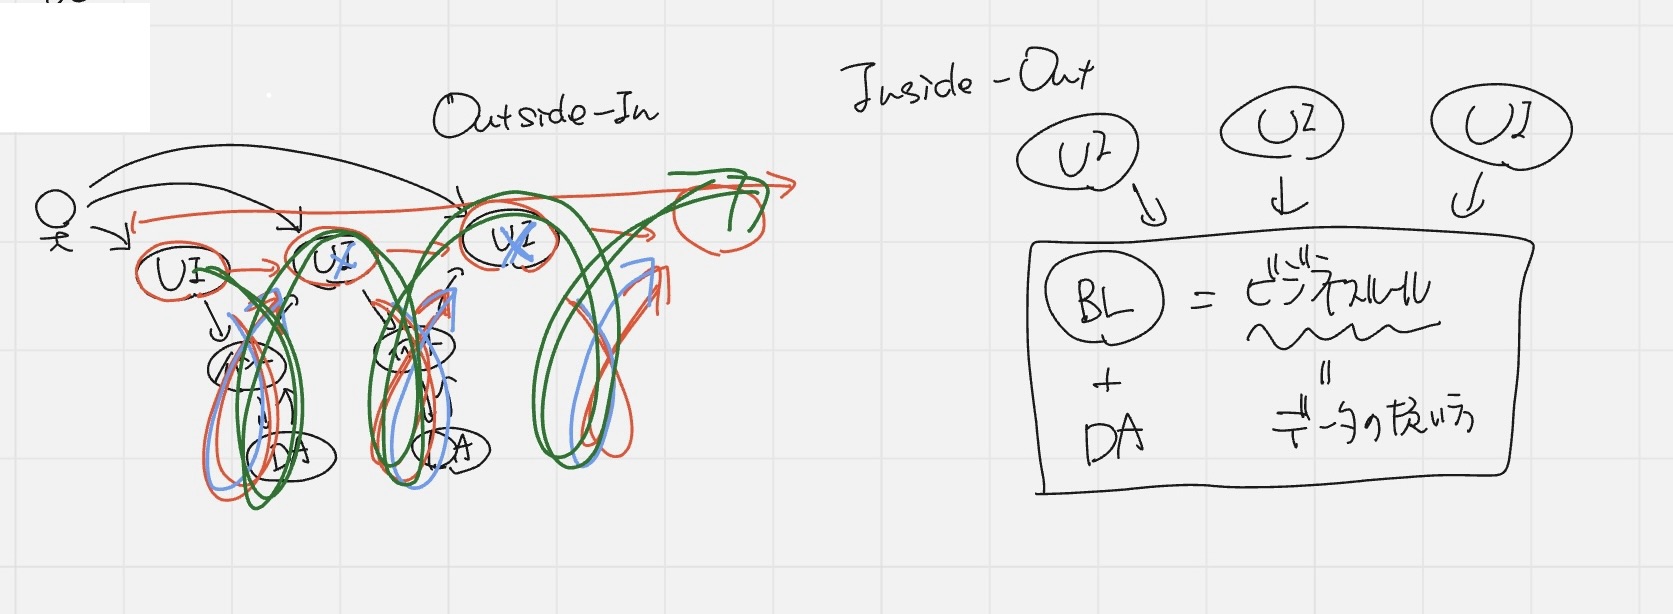 Outside-In
UI
UI
UI
DA
DA
Inside-Out
UI
UI
UI
BL = ビジネスルール
+
||
DA
データの扱い方